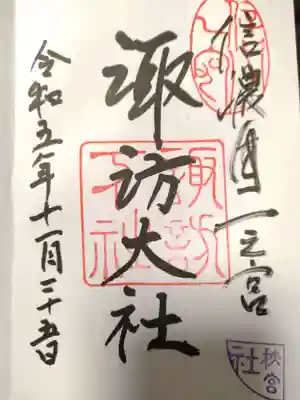 信濃國一之宮
諏訪大社
諏訪大社
令和五年十一月二十五日
秋宮
社